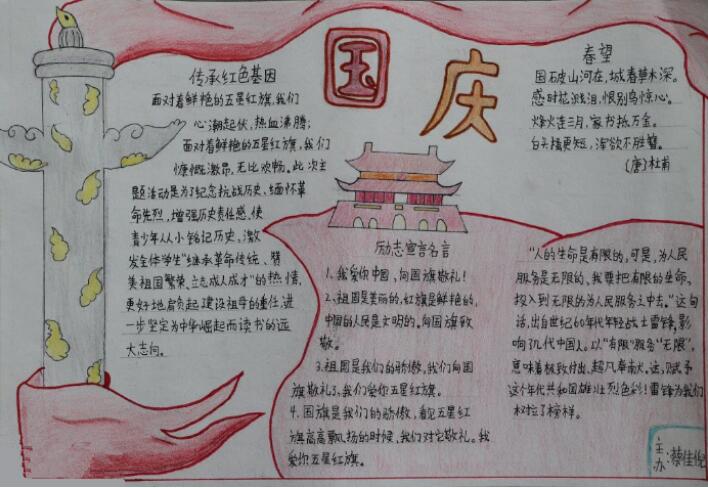 国庆
传承红色基因
面对着鲜艳的五星红旗,我们
心潮起伏,热血沸腾;
面对着鲜艳的五星红旗,我们
慷慨激昂,无比欢畅。此次主
题活动是为了纪念抗战历史、缅怀革
命先烈,增强历史责任感,使
青少年从小铭记历史、激
发全体学生“继承革命传统、赞
美祖国繁荣、立志成人成才”的热情,
更好地肩负起建设祖母的重任,进
一步坚定为中华崛起而读书的远
大志向。
春望
国破山河在,城春草木深。
感时花溅泪,恨别鸟惊心。
烽火连三月,家书抵万金。
白头搔更短,浑欲不胜簪。
(唐)杜甫
励志宣言名言
1、我爱你中国,向国旗敬礼!
2、祖国是美丽的,红旗是鲜艳的,
中国的人民是文明的。向国旗致
敬。
3.祖国是我们的骄傲,我们向国
旗敬礼了、我们爱你五星红旗。
4.国旗是我们的骄傲,看见五星红
旗高高飘扬的时候,我们对它敬礼。我
爱你五星红旗。
“人的生命是有限的,可是,为人民
服务是无限的,我要把有限的生命、
投入到无限的为人民服务之中去。”这句
话,出自世纪60年代年轻战士雷锋,影
响了几代中国人。以“有限”服务“无限”,
意味着极致付出、超凡奉献。这,赋予
这个年代共和国雄壮烈色彩!雷锋为我们
树立了榜样。
主办:蔡佳悦